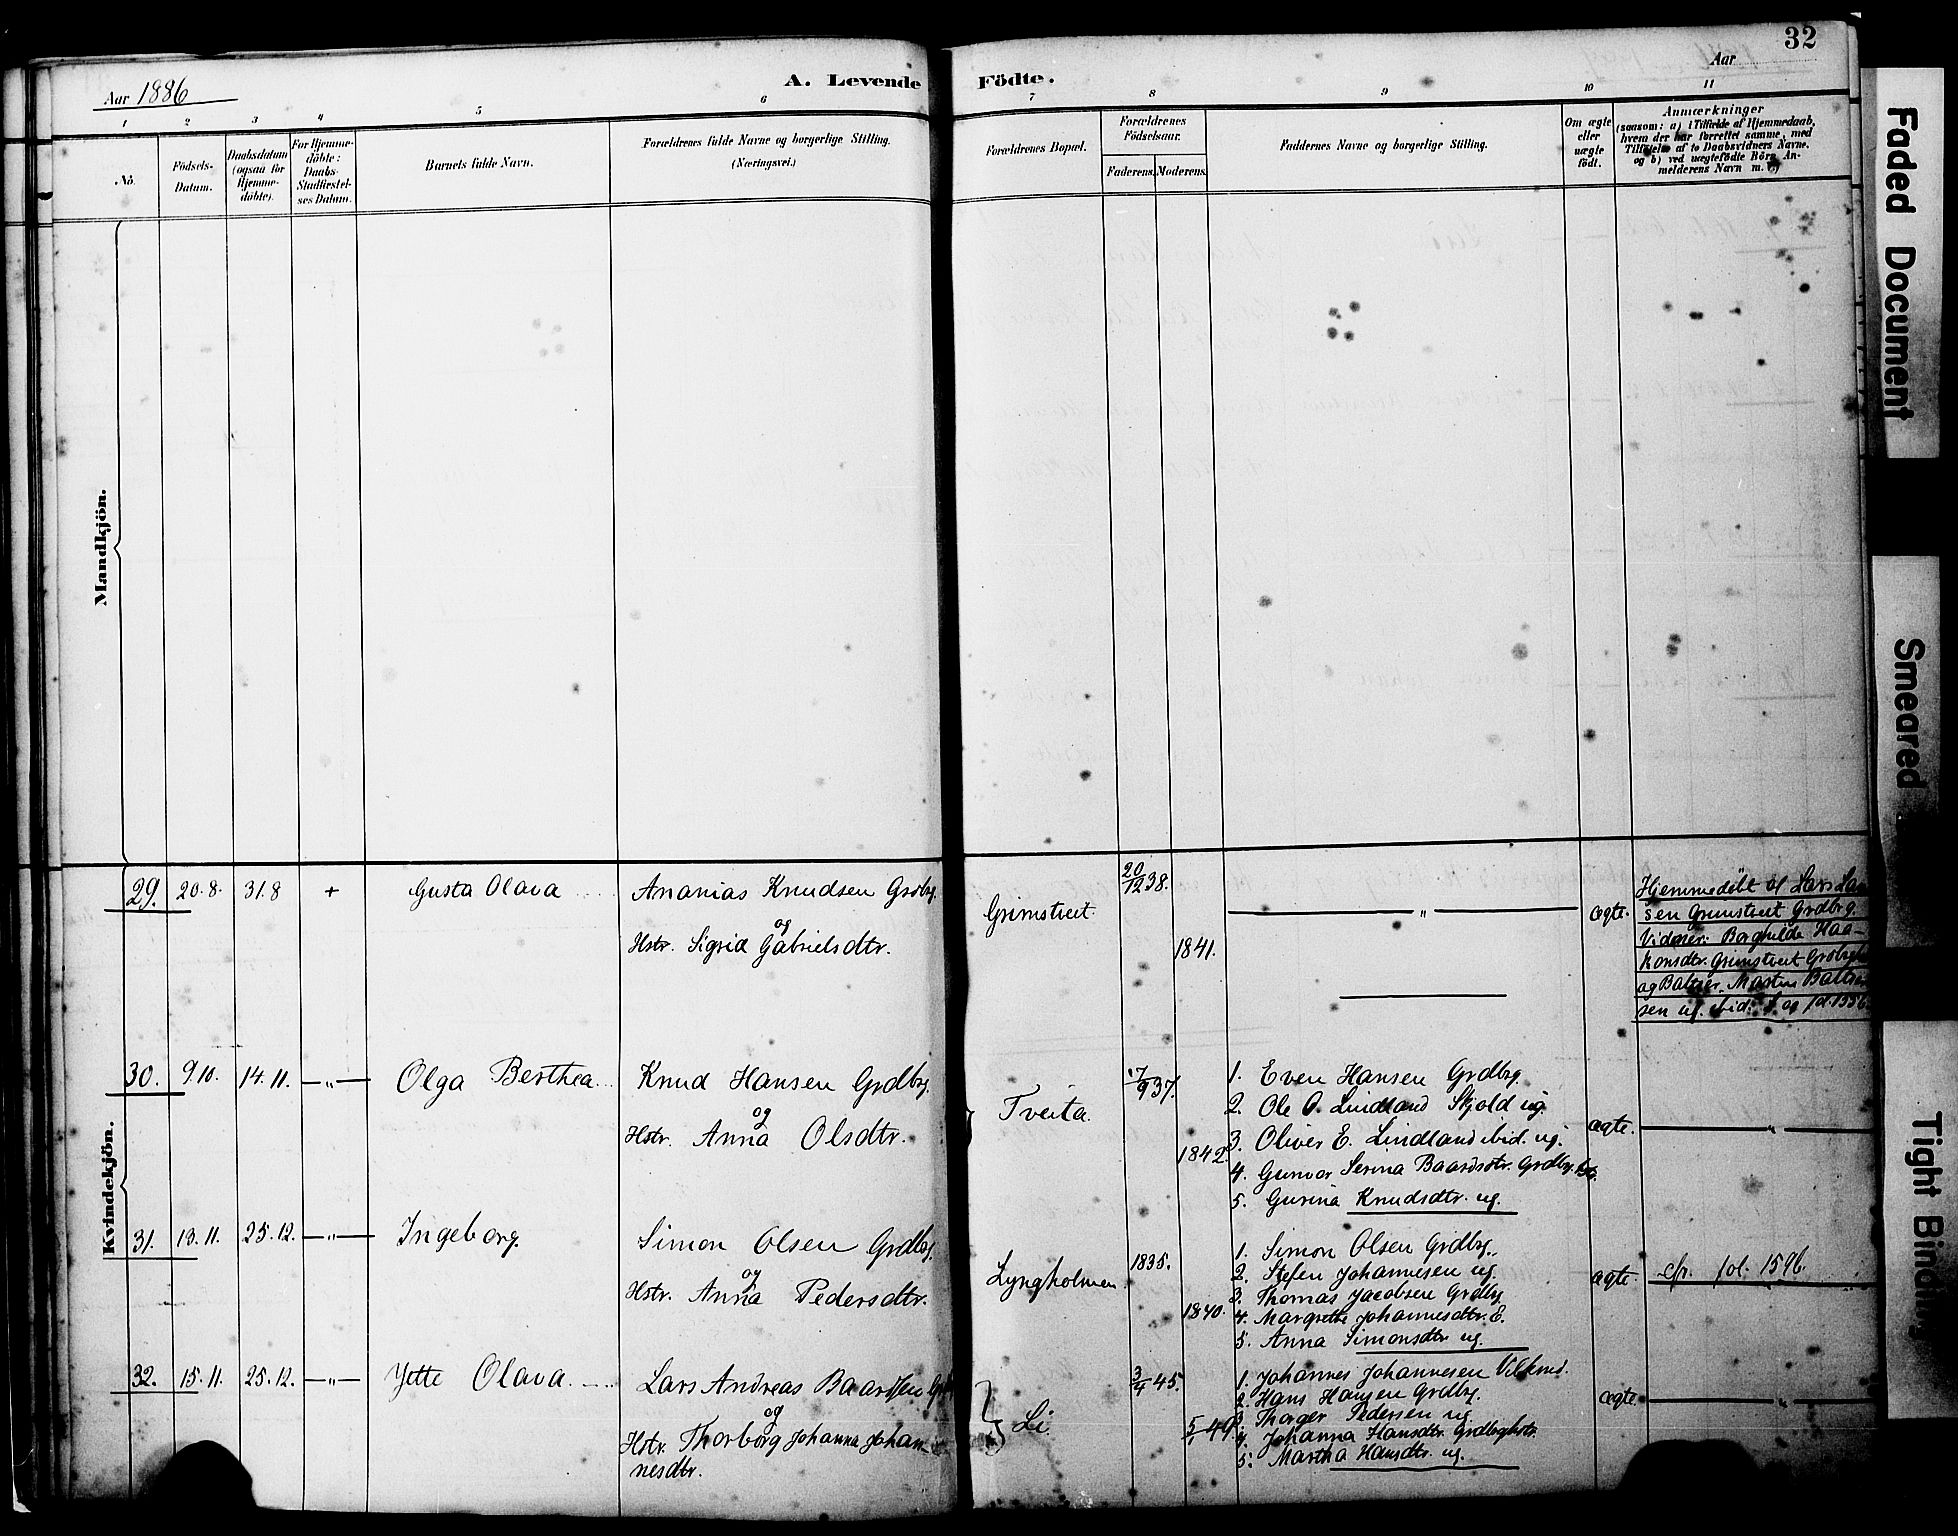 32
Aar 1886
A. Levende Födte.
Aar
1 2 3 4 5 6 7 8 9 10 11
No.
Födsels-
Datum.
Daabsdatum
(ogsaa for
Hjemme-
döbte).
For Hjemme-
döbte:
Daabs-
Stadfæstel-
ses Datum.
Barnets fulde Navn.
Forældrenes fulde Navne og borgerlige Stilling.
(Næringsvei.)
Forældrenes Bopæl.
Forældrenes
Födselsaar.
Faderens. Moderens.
Faddernes Navne og borgerlige Stilling.
Om ægte
eller
uægte
födt.
Anmærkninger
(saasom: a) i Tilfælde af Hjemmedaab,
hvem der har forrettet samme, med
Tilføielse af to Daabsvidners Navne,
og b) ved uægtefödte Börn An-
melderens Navn m. v.)
Mandkjön.
Kvindekjön.
29. 20.8. 31.8 + Gusta Olava
Ananias Knudsen Grdbrg.
og
Hstr. Sigrid Gabrielsdtr.
Grimstveit.
20/12 38.
1841.
"
ægte.
Hjemmedöbt af Lars Lar
sen Grimstveit Grdbrg.
Vidner: Borghilde Haa-
konsdtr. Grimstveit
og Baltser Martin Balts
sen ug. ibid.
30. 9.10. 14.11. —"— Olga Berthea
Knud Hansen Grdbrg.
og
Hstr. Anna Olsdtr.
Tveita.
17/9 37.
1842.
1. Even Hansen Grdbrg.
2. Ole O. Lindland Skjold ug.
3. Oliver E. Lindland ibid. ug.
4. Gunvor Serina Baardsdtr. Grdbrg.
5. Gurina Knudsdtr. ug.
ægte.
"
31. 13.11. 25.12. —"— Ingeborg.
Simon Olsen Grdbrg.
og
Hstr. Anna Pedersdtr.
Lyngholmen.
1835.
1840.
1. Simon Olsen Grdbrg.
2. Stefen Johannesen ug.
3. Thomas Jacobsen Grdbrg
4. Margrethe Johannesdtr. E.
5. Anna Simonsdtr ug.
ægte.
cfr. fol. 159b.
32. 15.11. 25.12. —"— Jette Olava.
Lars Andreas Baardsen
og
Hstr. Thorborg Johanna Johan
nesdtr.
Li.
3/4 45.
49.
1. Johannes Johannesen
2. Hans Hansen Grdbrg.
3. Thorger Pedersen ug
4. Johanna Hansdtr. Grdbrghstr.
5. Martha Hansdtr. ug.
ægte.
Faded Document
Smeared
Tight Binding